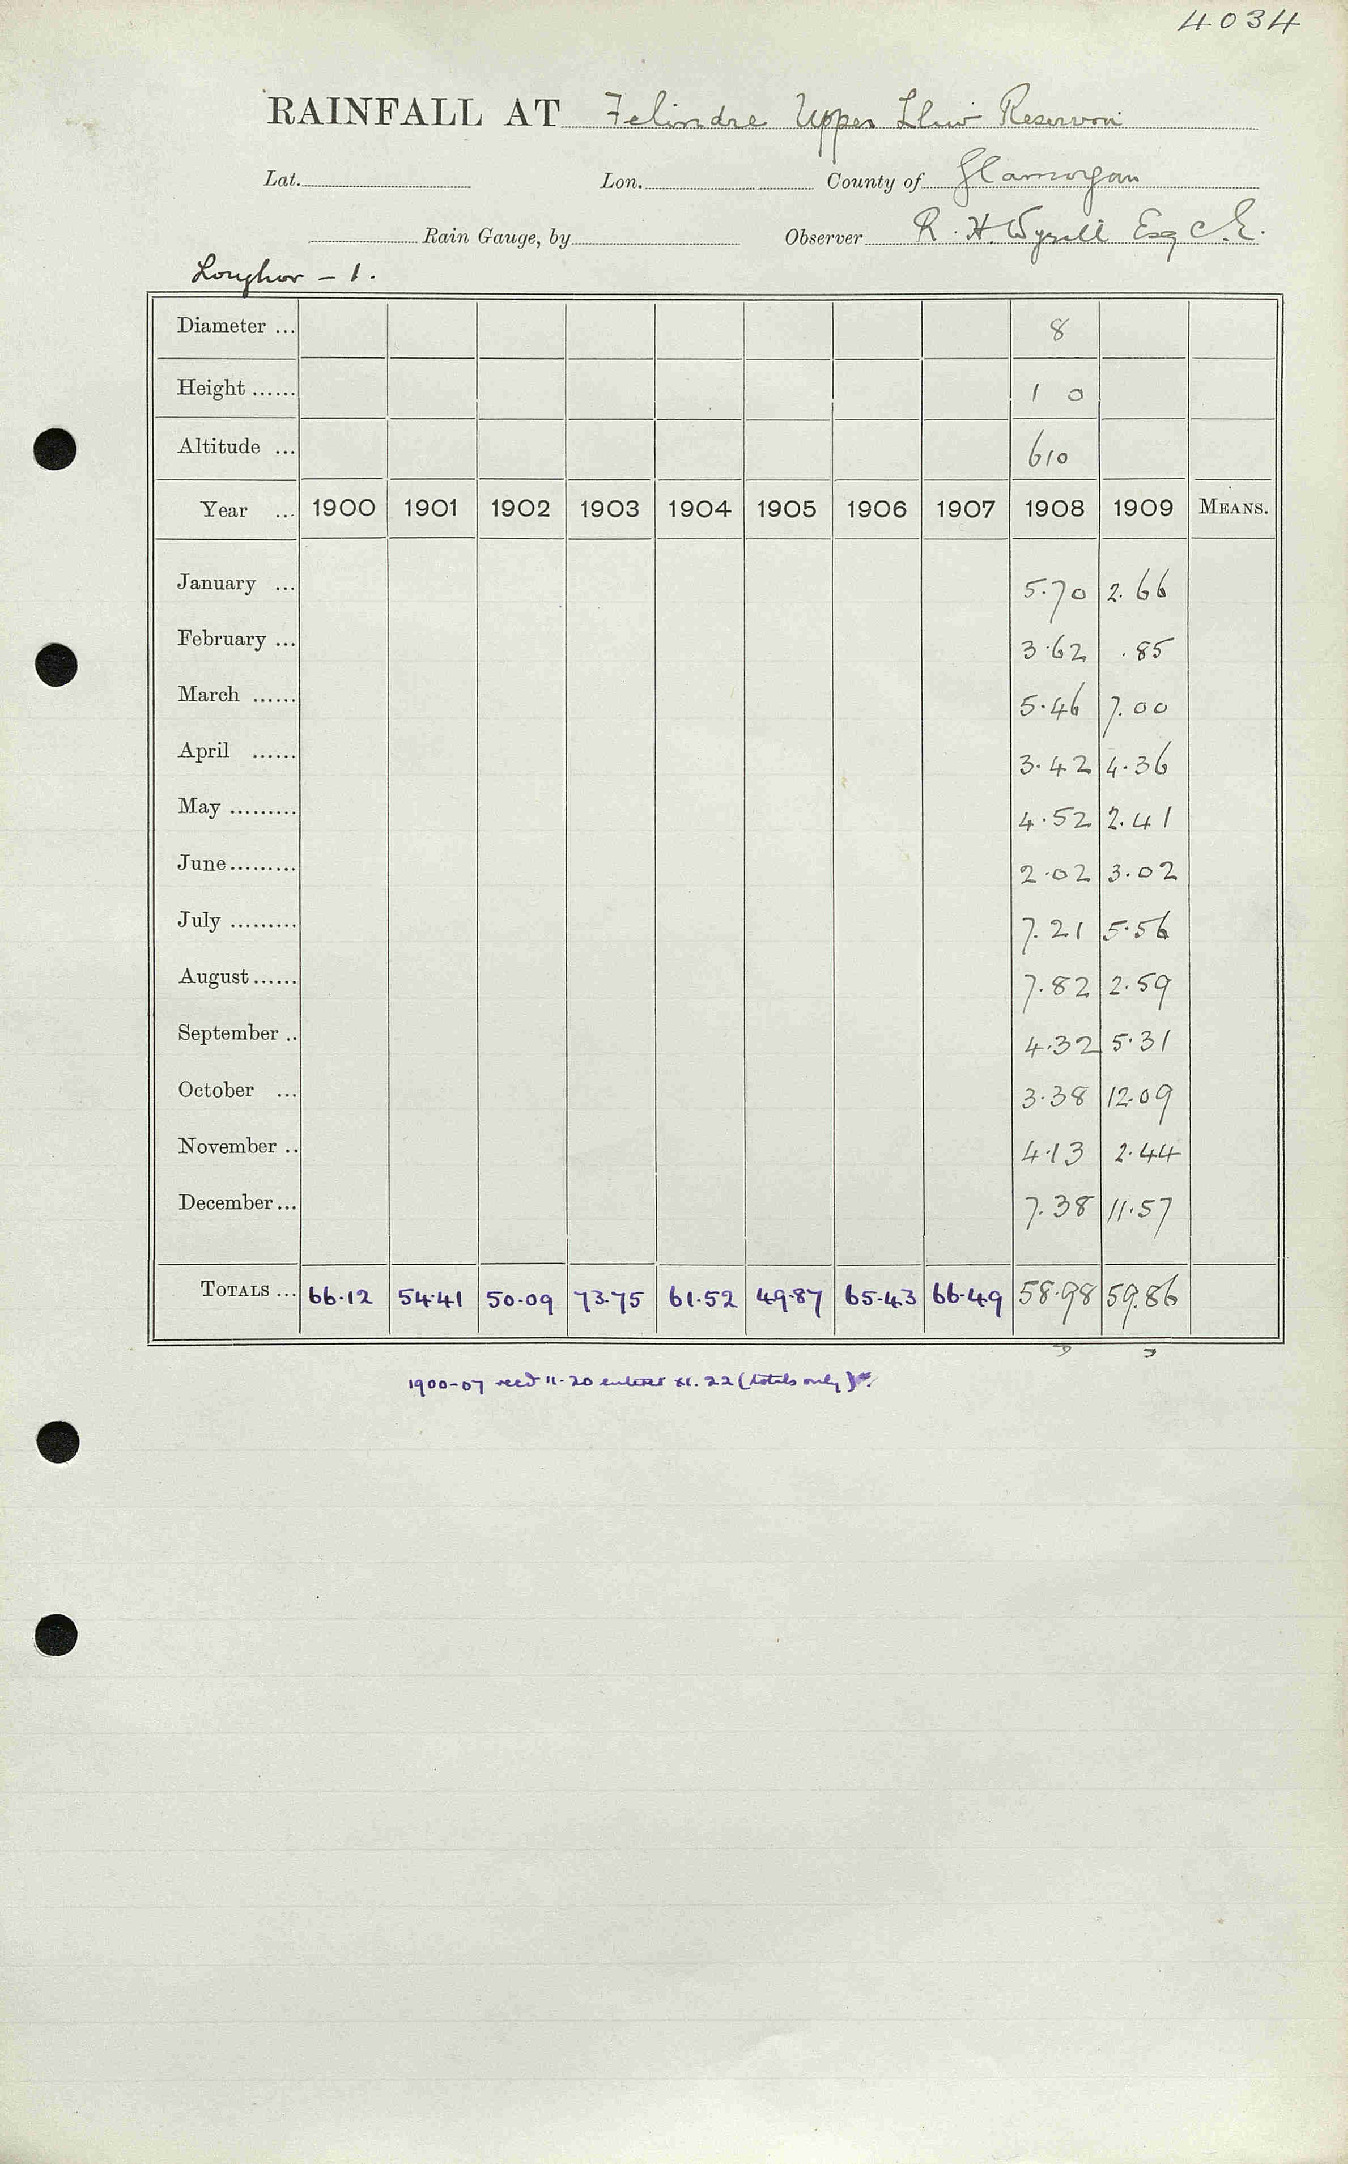 4034
RAINFALL AT Felindre Upper Lliw Reservoir
Lat. Lon. County of Glamorgan
Rain Gauge, by Observer R. H. Wyrill Esq C.E.
Loughor - 1.
Diameter ... 8
Height ...... 1 0
Altitude ... 610
Year ... 1900 1901 1902 1903 1904 1905 1906 1907 1908 1909 MEANS.
January ... 5.70 2.66
February ... 3.62 .85
March ...... 5.46 7.00
April ...... 3.42 4.36
May ......... 4.52 2.41
June ......... 2.02 3.02
July ......... 7.21 5.56
August ...... 7.82 2.59
September .. 4.32 5.31
October ... 3.38 12.09
November .. 4.13 2.44
December ... 7.38 11.57
TOTALS ... 66.12 54.41 50.09 73.75 61.52 49.87 65.43 66.49 58.98 59.86
1900-07 recd 11-20 entered xi.22 (totals only)